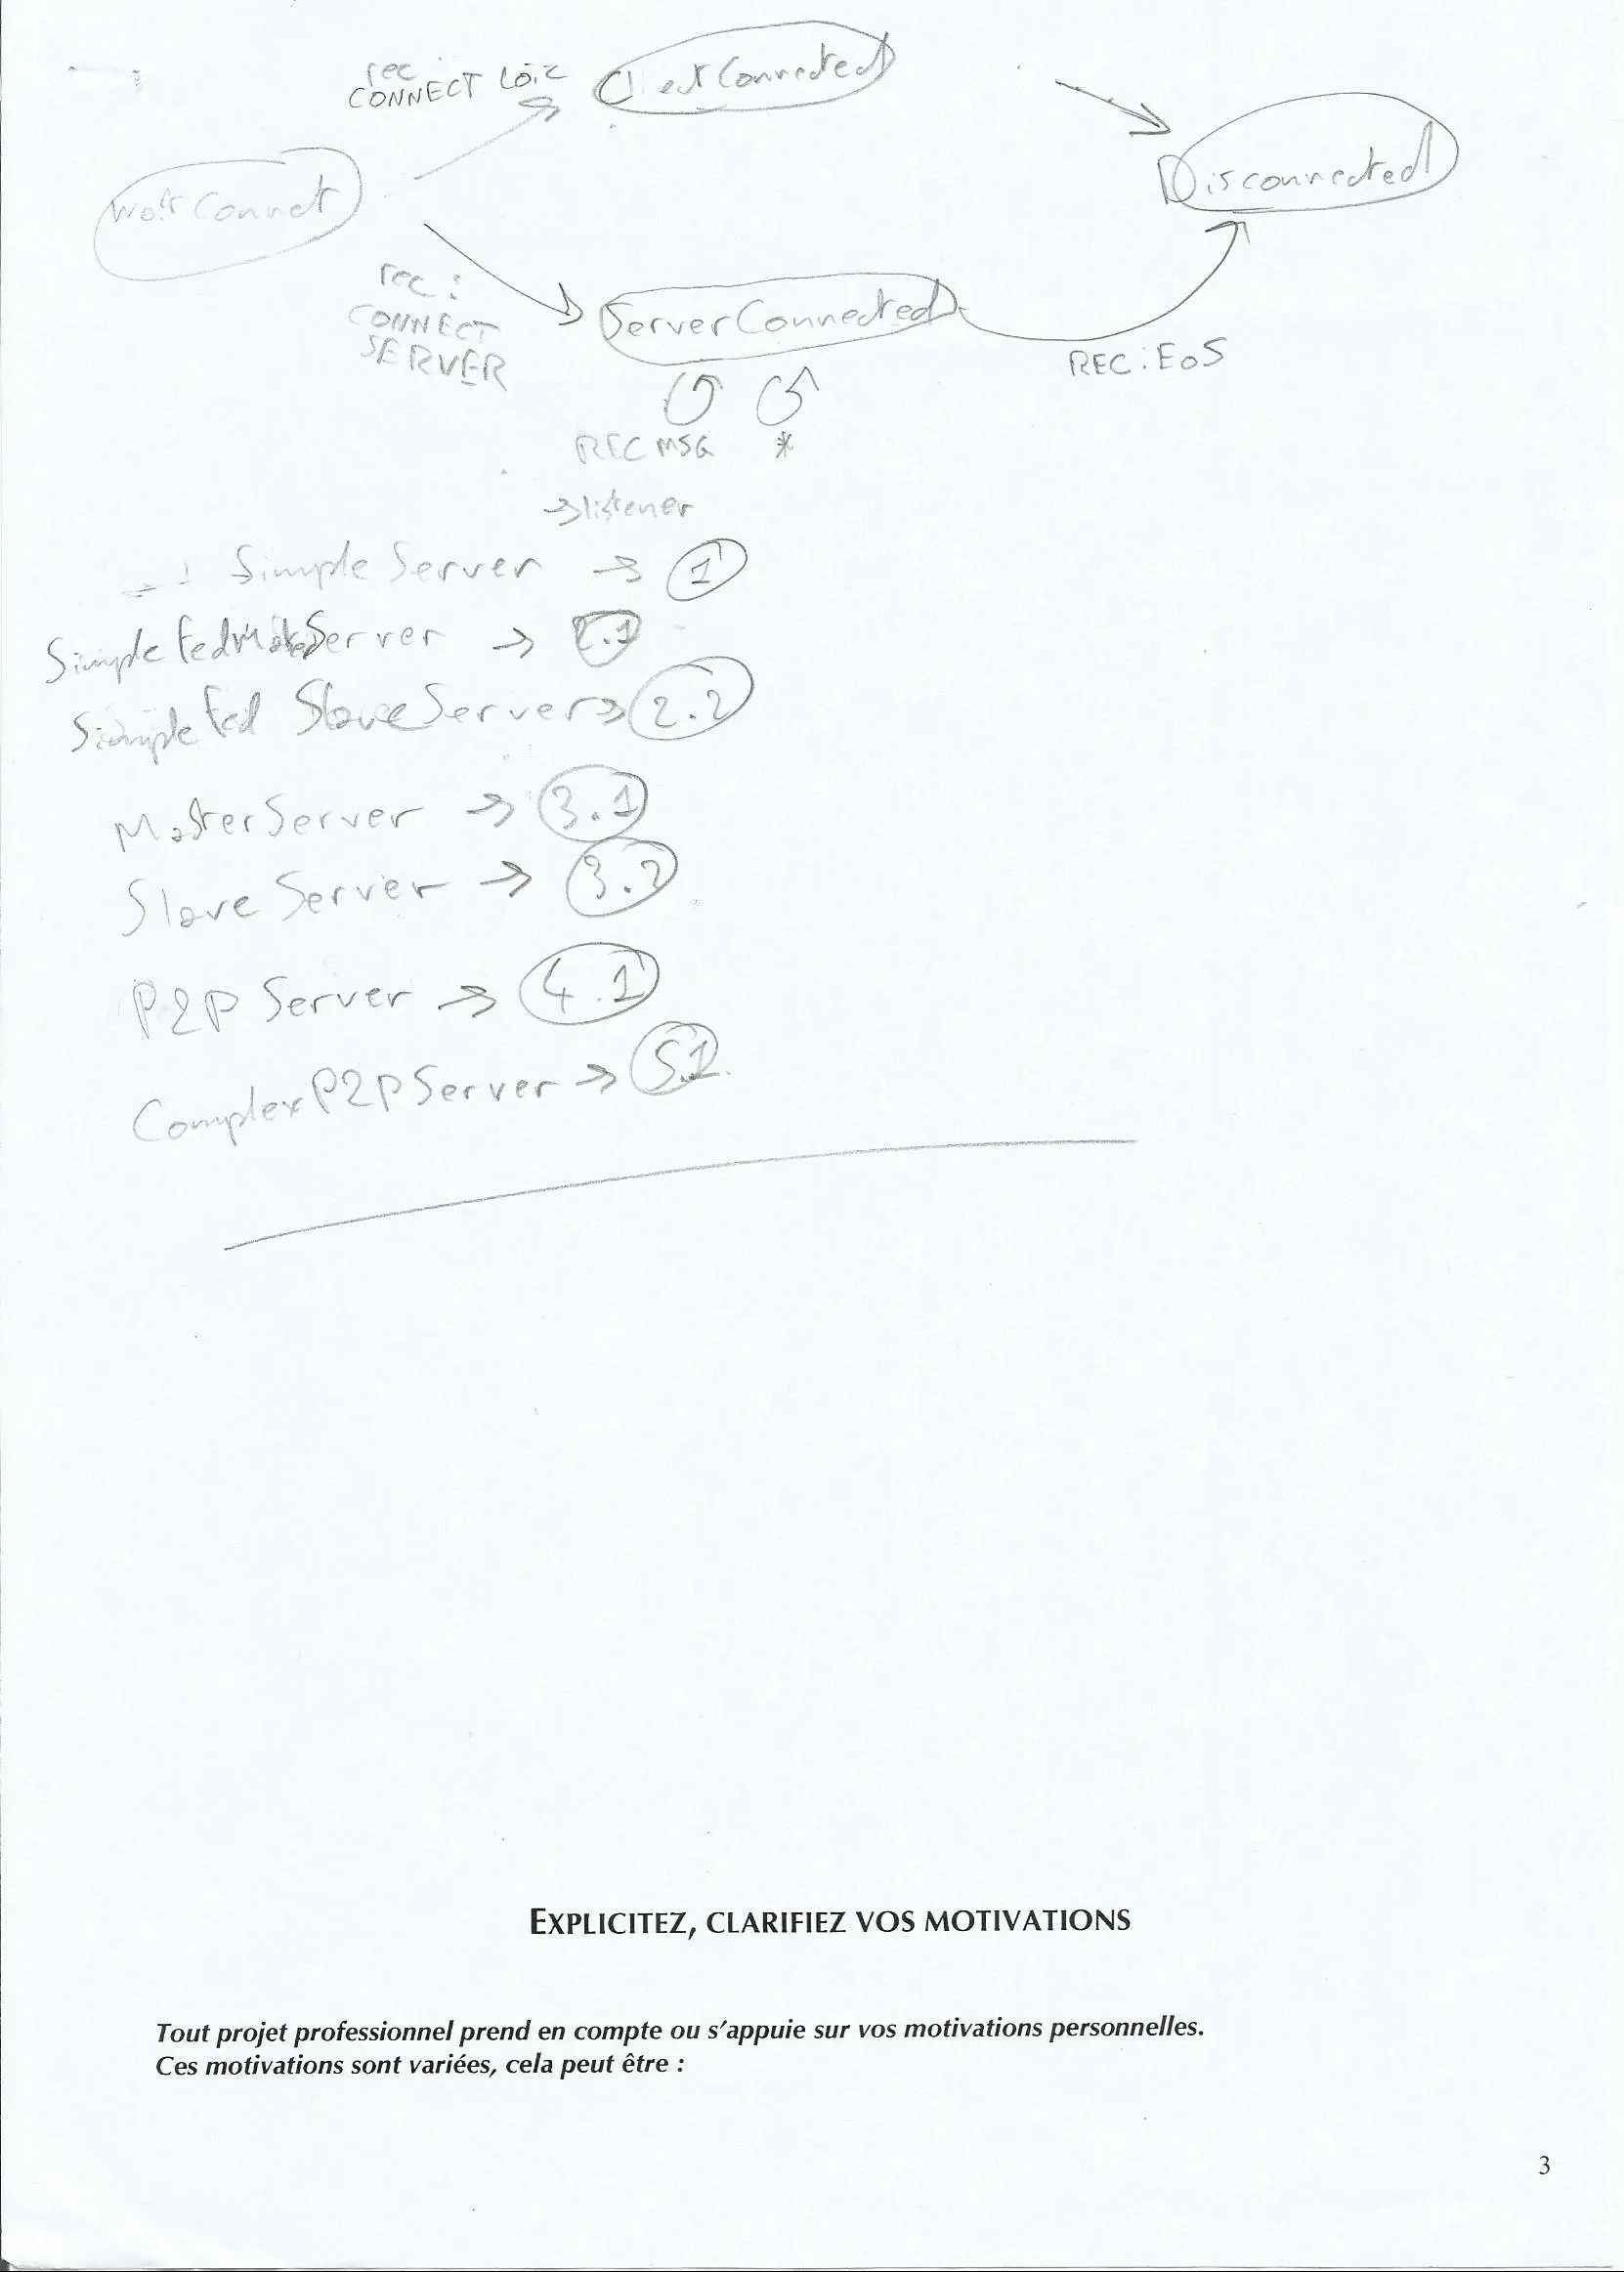 rec
CONNECT LOÏC
ClientConnected
WaitConnect
Disconnected
rec :
CONNECT
SERVER
ServerConnected
REC : EOS
REC MSG *
→ listener
SimpleServer → 1
Simple Fed Server → 2.1
Simple Fed SlaveServer → 2.2
MasterServer → 3.1
SlaveServer → 3.2
P2P Server → 4.1
ComplexP2PServer → 5.1
EXPLICITEZ, CLARIFIEZ VOS MOTIVATIONS
Tout projet professionnel prend en compte ou s'appuie sur vos motivations personnelles.
Ces motivations sont variées, cela peut être :
3